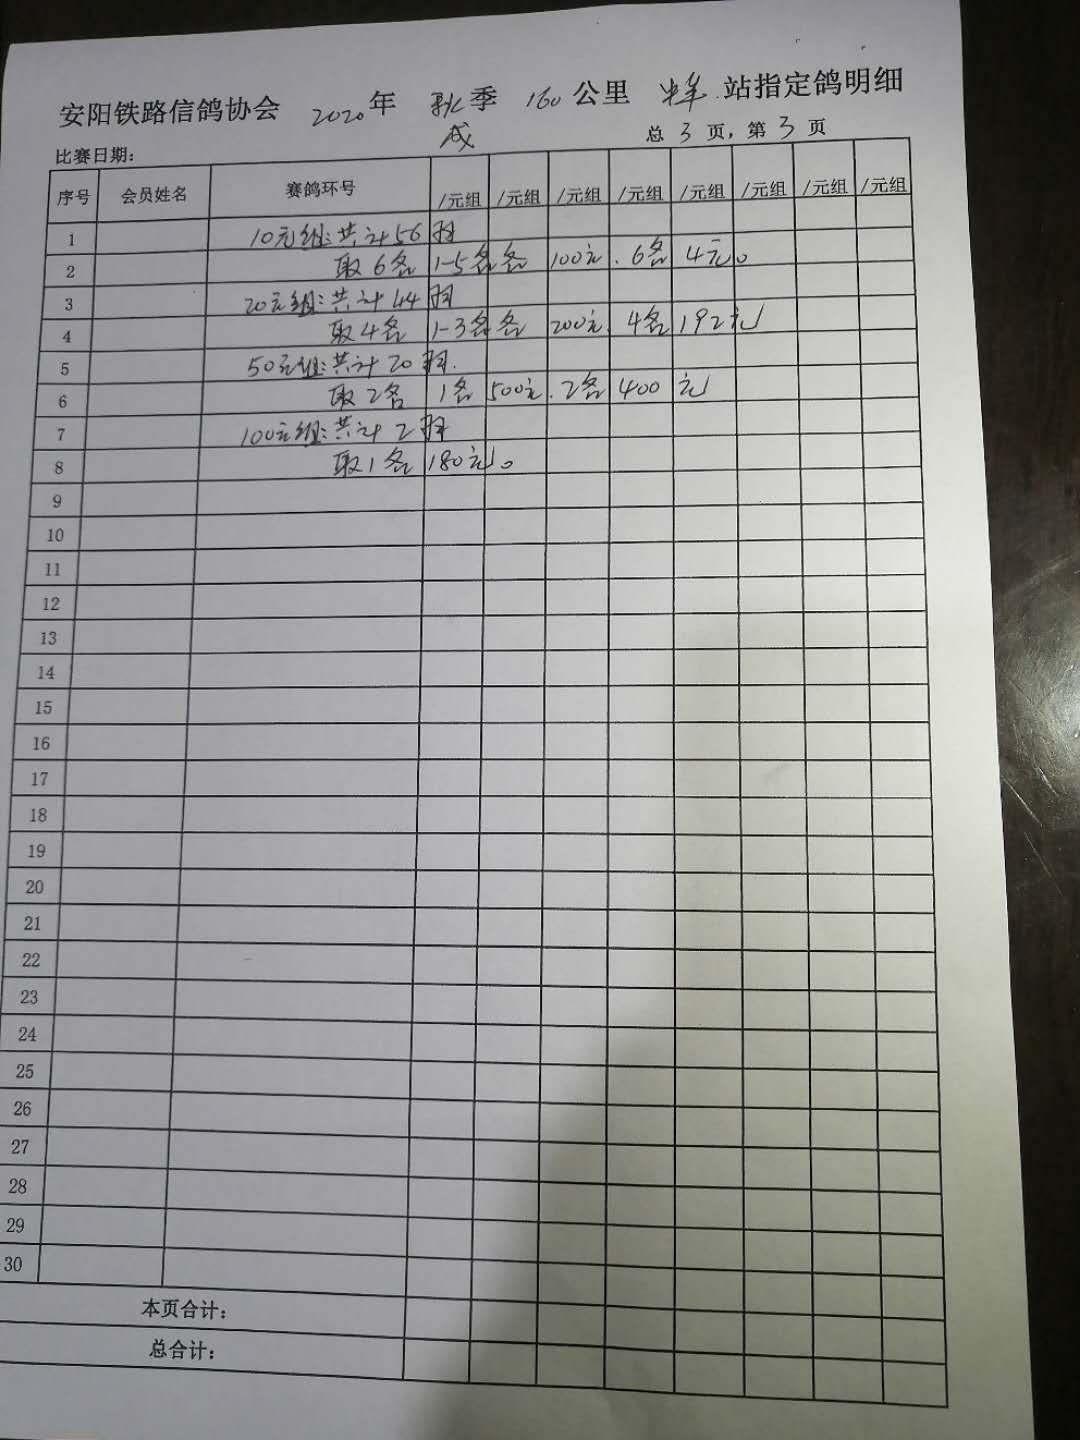 安阳铁路信鸽协会 2020年 秋季 160公里 站指定鸽明细
成
比赛日期： 总 3 页，第 3 页
序号 会员姓名 赛鸽环号 /元组 /元组 /元组 /元组 /元组 /元组 /元组 /元组
1 10元组：共计56羽
2 取6名 1-5名各 100元．6名 4元。
3 20元组：共计44羽
4 取4名 1-3名各 200元．4名192元
5 50元组：共计20羽．
6 取2名 1名 500元．2名 400元
7 100元组：共计2羽
8 取1名 180元。
9
10
11
12
13
14
15
16
17
18
19
20
21
22
23
24
25
26
27
28
29
30
本页合计：
总合计：